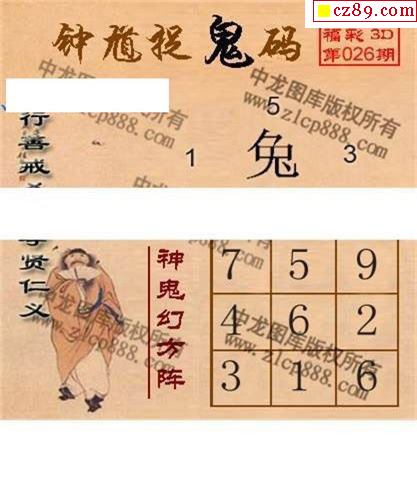 cz89.com
钟馗捉鬼码
福彩3D
第026期
5
1 兔 3
行善戒
贤仁义
神鬼幻方阵
7 5 9
4 6 2
3 1 6
中龙图库版权所有
www.zlcp888.com
中龙图库版权所有
www.zlcp888.com